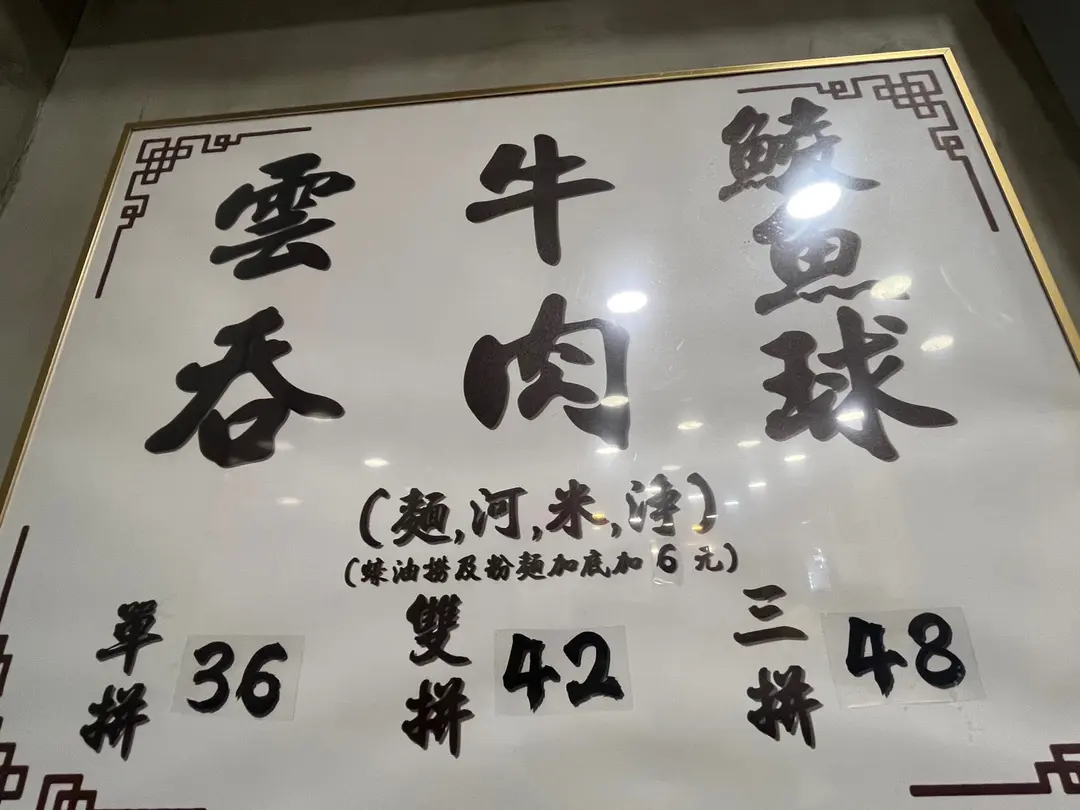 雲吞
牛肉
鯪魚球
(麵,河,米,淨)
(蠔油撈及粉麵加底加 6 元)
單拼 36
雙拼 42
三拼 48